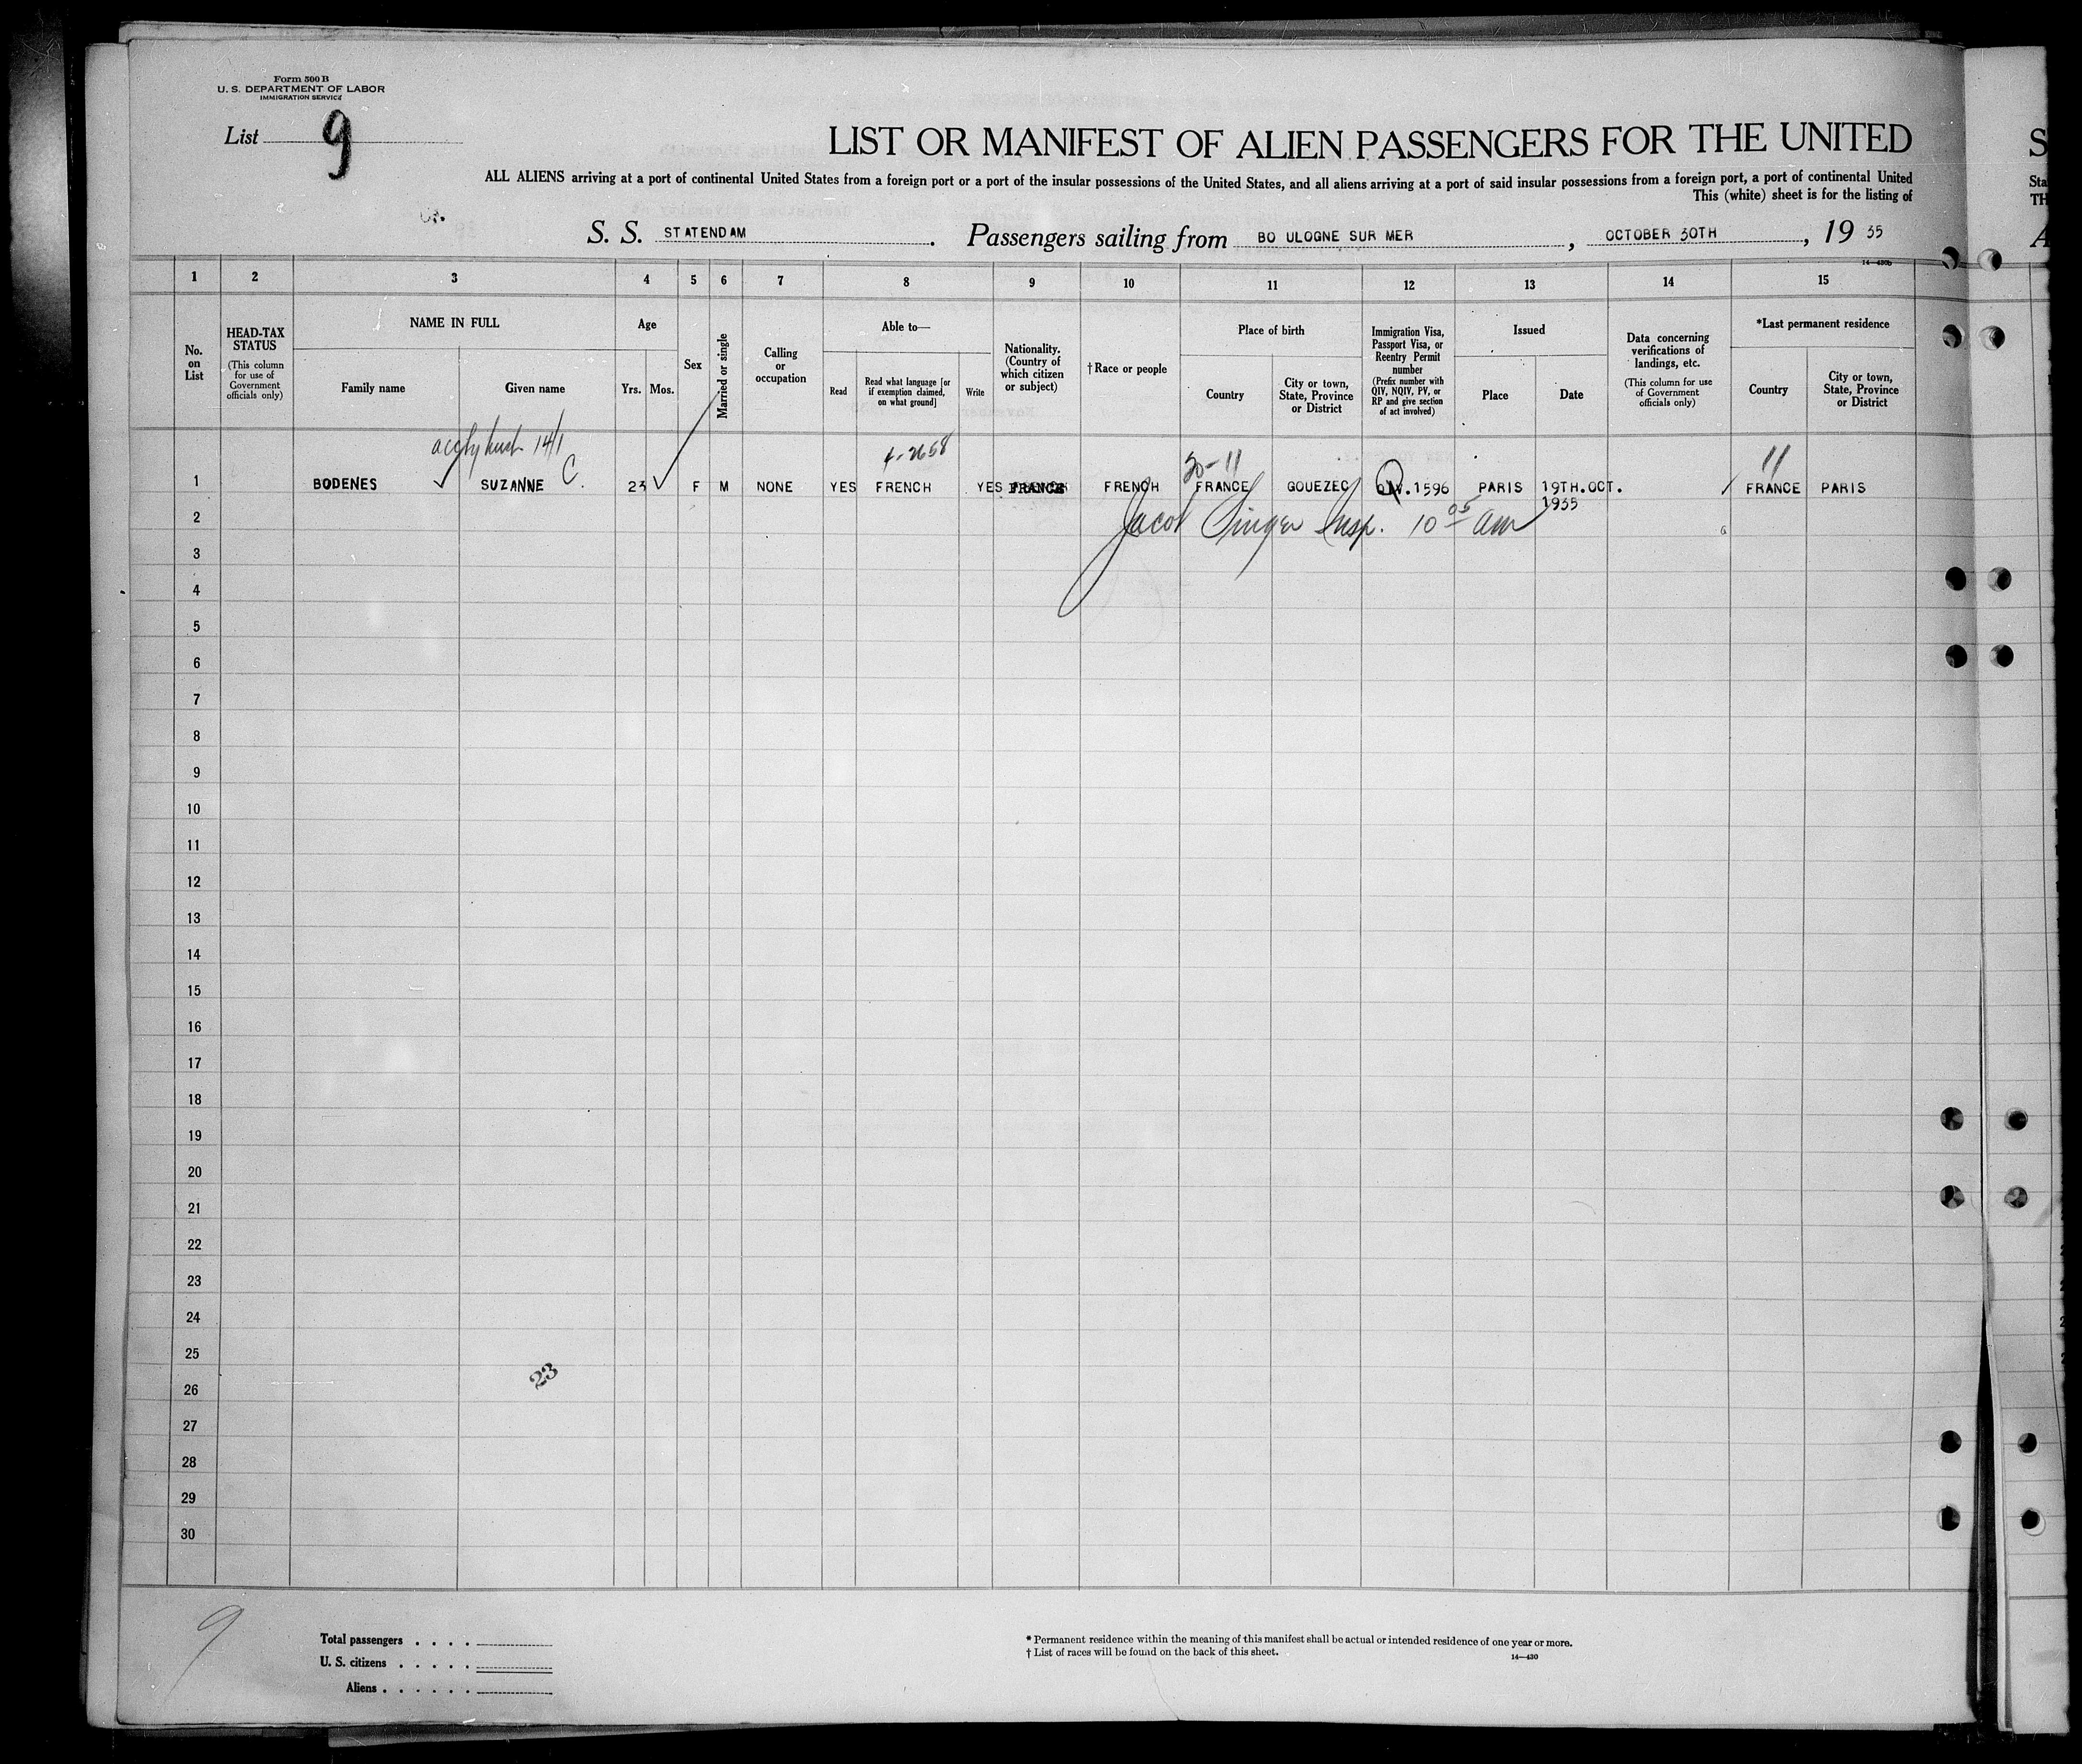 Form 500 B
U. S. DEPARTMENT OF LABOR
IMMIGRATION SERVICE
List 9
LIST OR MANIFEST OF ALIEN PASSENGERS FOR THE UNITED
S
ALL ALIENS arriving at a port of continental United States from a foreign port or a port of the insular possessions of the United States, and all aliens arriving at a port of said insular possessions from a foreign port, a port of continental United
Sta
This (white) sheet is for the listing of
TH
S. S. STATENDAM. Passengers sailing from BOULOGNE SUR MER, OCTOBER 30TH, 19 35
A
14-430b
1 2 3 4 5 6 7 8 9 10 11 12 13 14 15
No. on List
HEAD-TAX STATUS
(This column for use of Government officials only)
NAME IN FULL
Family name
Given name
Age
Yrs.
Mos.
Sex
Married or single
Calling or occupation
Able to—
Read
Read what language [or if exemption claimed, on what ground]
Write
Nationality. (Country of which citizen or subject)
†Race or people
Place of birth
Country
City or town, State, Province or District
Immigration Visa, Passport Visa, or Reentry Permit number
(Prefix number with QIV, NQIV, PV, or RP and give section of act involved)
Issued
Place
Date
Data concerning verifications of landings, etc.
(This column for use of Government officials only)
*Last permanent residence
Country
City or town, State, Province or District
14/1
4-2658
20-11
11
1 BODENES SUZANNE C. 23 F M NONE YES FRENCH YES FRANCE FRENCH FRANCE GOUEZEC QIV.1596 PARIS 19TH.OCT. FRANCE PARIS
1935
2
Jacob Singer Insp. 10 05 am
3
4
5
6
7
8
9
10
11
12
13
14
15
16
17
18
19
20
21
22
23
24
25
23
26
27
28
29
30
9
Total passengers . . . .
U. S. citizens . . . . .
Aliens . . . . . .
* Permanent residence within the meaning of this manifest shall be actual or intended residence of one year or more.
† List of races will be found on the back of this sheet.
14—430